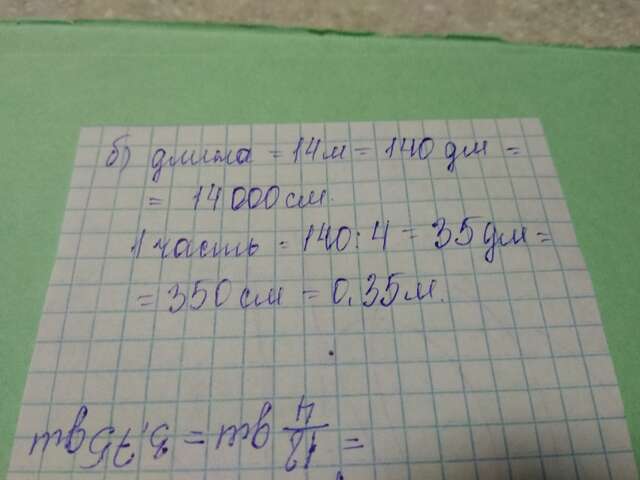 б) длина = 14м = 140 дм =
= 14000см.
1 часть = 140:4 = 35дм =
= 350см = 0.35м.
= 15/4 дм = 3,75дм